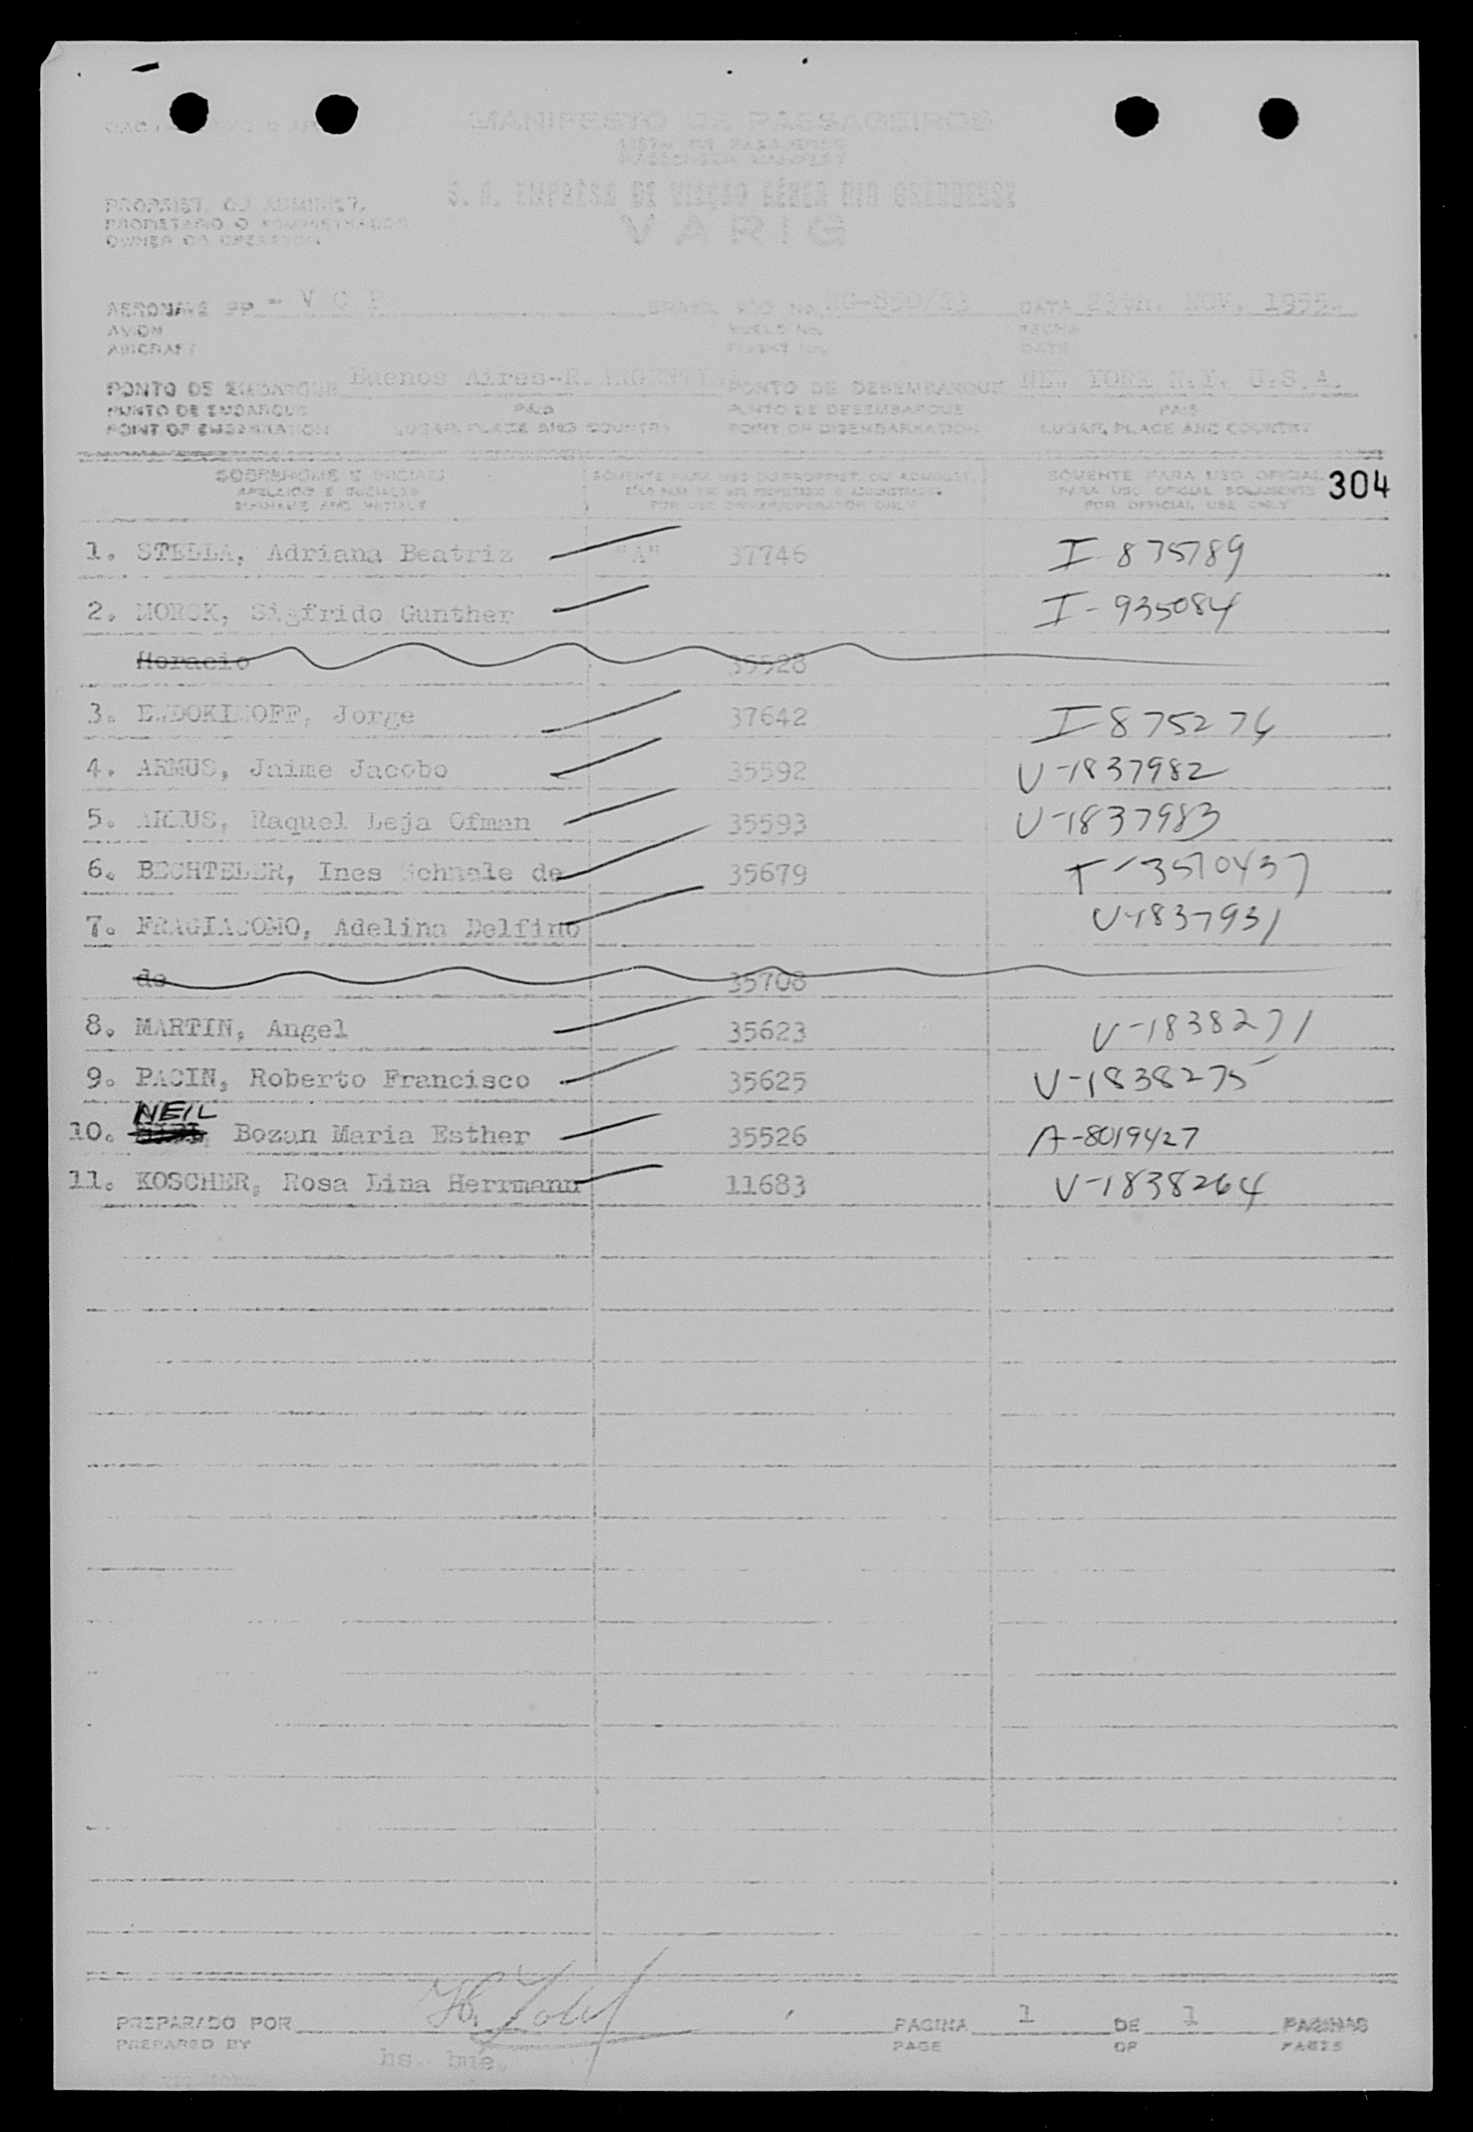 MANIFESTO DE PASSAGEIROS
LISTA DE PASAJEROS
PASSENGER MANIFEST
PROPRIET. OU ADMINIST. S. A. EMPRÊSA DE VIAÇÃO AÉREA RIO GRANDENSE
PROPIETARIO O
OWNER OR OPERATOR
VARIG
AERONAVE PP - V C P BRASIL VÔO No. RG-850/23 DATA 23th. NOV. 1955.
AVION VUELO No. FECHA
AIRCRAFT FLIGHT No. DATE
PONTO DE EMBARQUE Buenos Aires-R. ARGENTINA PONTO DE DESEMBARQUE NEW YORK N.Y. U.S.A.
PUNTO DE EMBARQUE PAIS PUNTO DE DESEMBARQUE PAIS
POINT OF EMBARKATION LUGAR, PLACE AND COUNTRY POINT OF DISEMBARKATION LUGAR, PLACE AND COUNTRY
SOBRENOME E INICIAIS SOMENTE PARA USO DO PROPRIET. OU ADMINIST. SOMENTE PARA USO OFICIAL
APELLIDO E INICIALES PARA USO OFICIAL SOLAMENTE 304
SURNAME AND INITIALS FOR USE OWNER/OPERATOR ONLY FOR OFFICIAL USE ONLY
1. STELLA, Adriana Beatriz "A" 37746 I-875789
2. MORCK, Sigfrido Gunther I-935084
Horacio 35528
3. Jorge 37642 I-875276
4. ARMUS, Jaime Jacobo 35592 V-1837982
5. ARMUS, Raquel Leja Ofman 35593 V-1837983
6. BECHTELER, Ines de 35679 T-3570437
7. FRAGIACOMO, Adelina Delfino V-1837931
de 35708
8. MARTIN, Angel 35623 V-1838271
9. PACIN, Roberto Francisco 35625 V-1838275
NEIL
10. Bozan Maria Esther 35526 A-8019427
11. KOSCHER, Rosa Lina Herrmann 11683 V-1838264
PREPARADO POR PAGINA 1 DE 1 PAGINAS
PREPARED BY hs. bue. PAGE OF PAGES